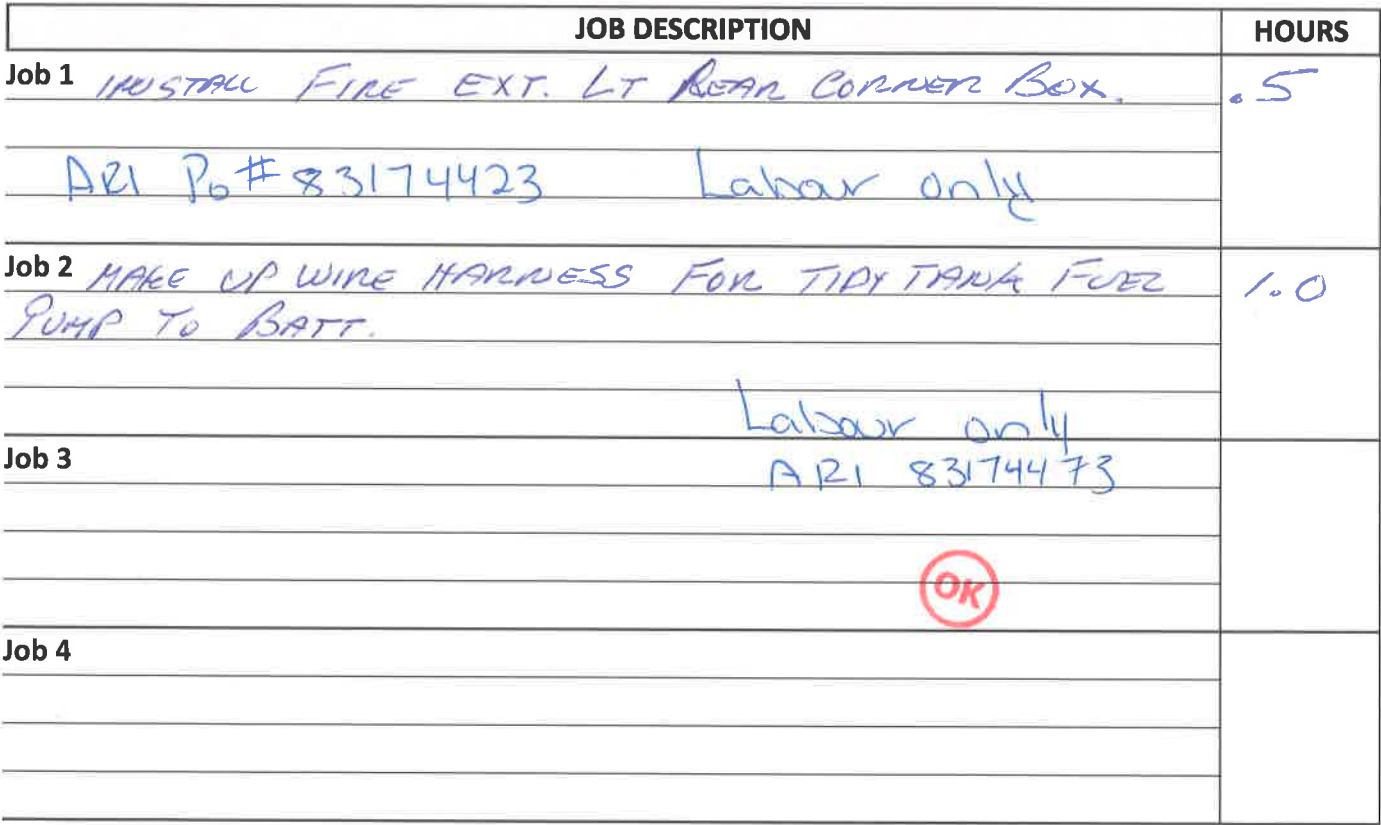 JOB DESCRIPTION HOURS
Job 1 INSTALL FIRE EXT. LT REAR CORNER BOX. .5
ARI Po# 83174423 Labour only
Job 2 MAKE UP WIRE HARNESS FOR TIDY TANK FUEL 1.0
PUMP TO BATT.
Labour only
Job 3 ARI 83174473
OK
Job 4